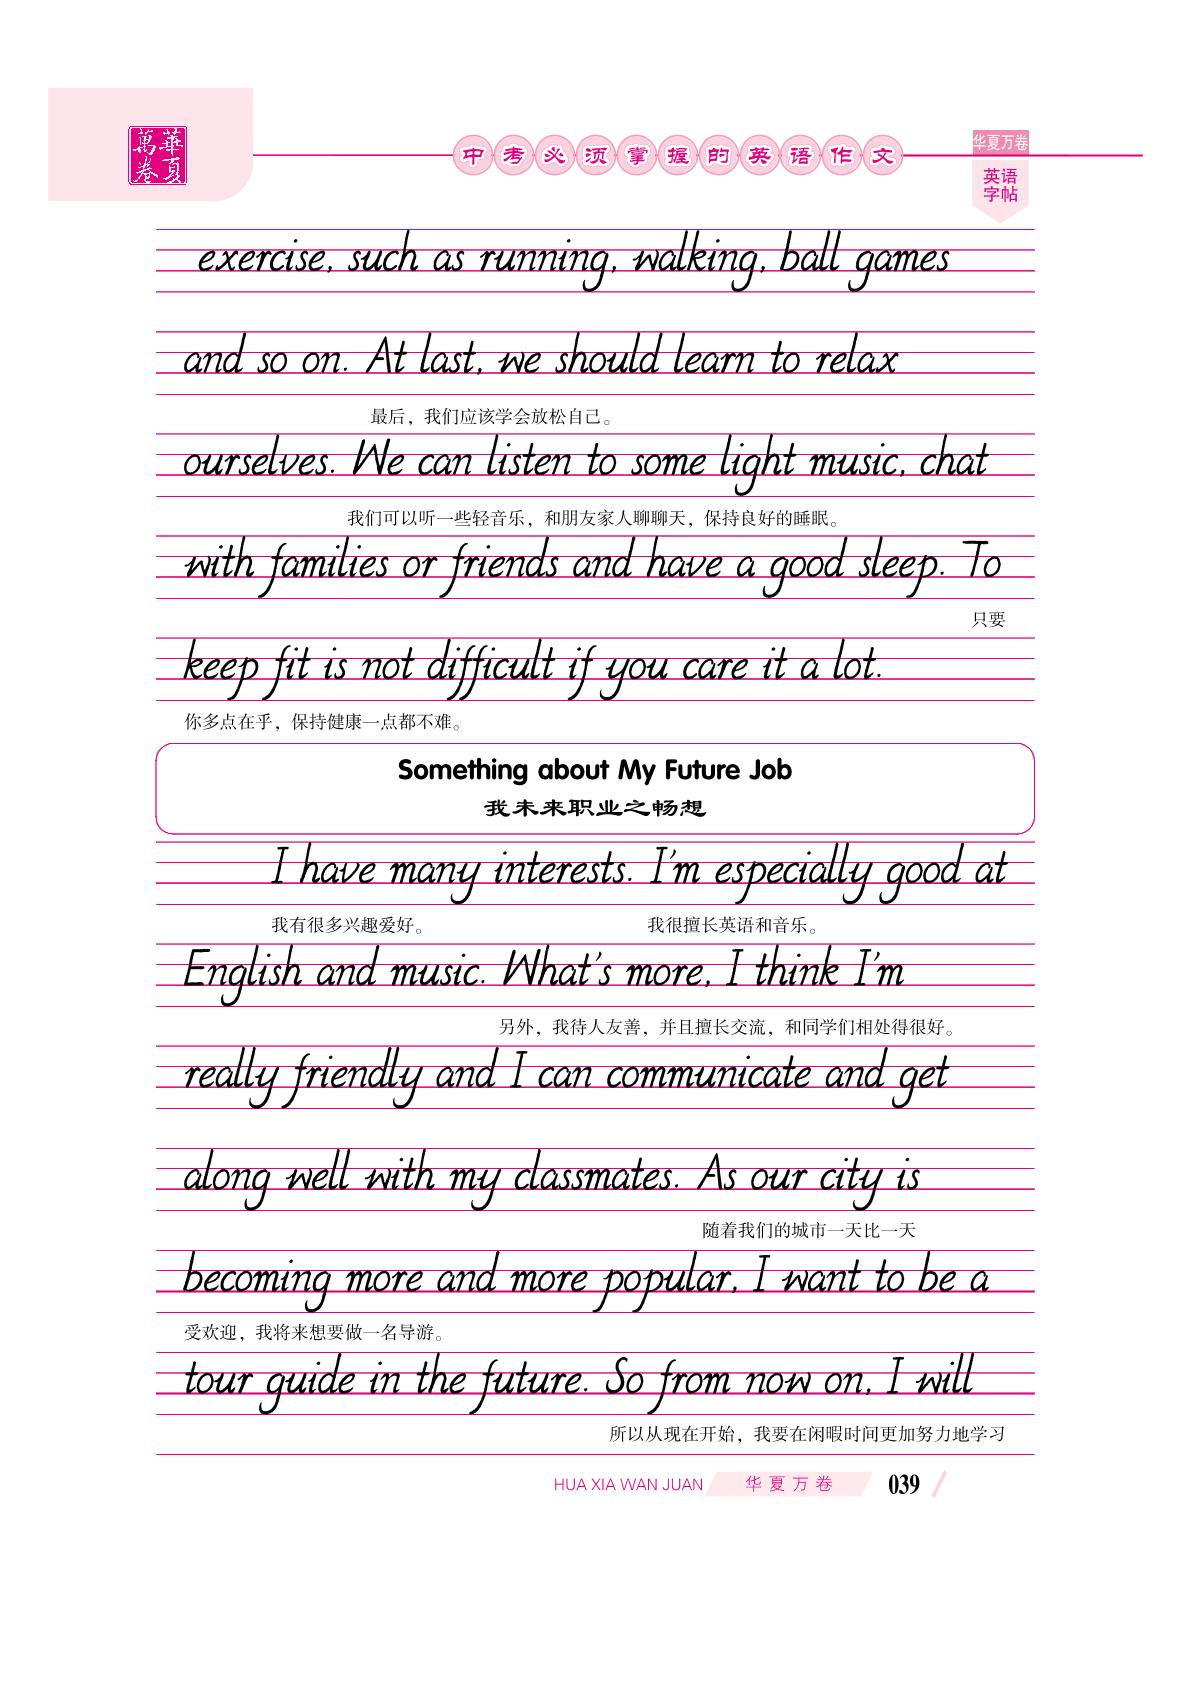 萬卷 華夏
中考必须掌握的英语作文
华夏万卷
英语
字帖
exercise, such as running, walking, ball games
and so on. At last, we should learn to relax
最后，我们应该学会放松自己。
ourselves. We can listen to some light music, chat
我们可以听一些轻音乐，和朋友家人聊聊天，保持良好的睡眠。
with families or friends and have a good sleep. To
只要
keep fit is not difficult if you care it a lot.
你多点在乎，保持健康一点都不难。
Something about My Future Job
我未来职业之畅想
I have many interests. I'm especially good at
我有很多兴趣爱好。 我很擅长英语和音乐。
English and music. What's more, I think I'm
另外，我待人友善，并且擅长交流，和同学们相处得很好。
really friendly and I can communicate and get
along well with my classmates. As our city is
随着我们的城市一天比一天
becoming more and more popular, I want to be a
受欢迎，我将来想要做一名导游。
tour guide in the future. So from now on, I will
所以从现在开始，我要在闲暇时间更加努力地学习
HUA XIA WAN JUAN 华夏万卷 039